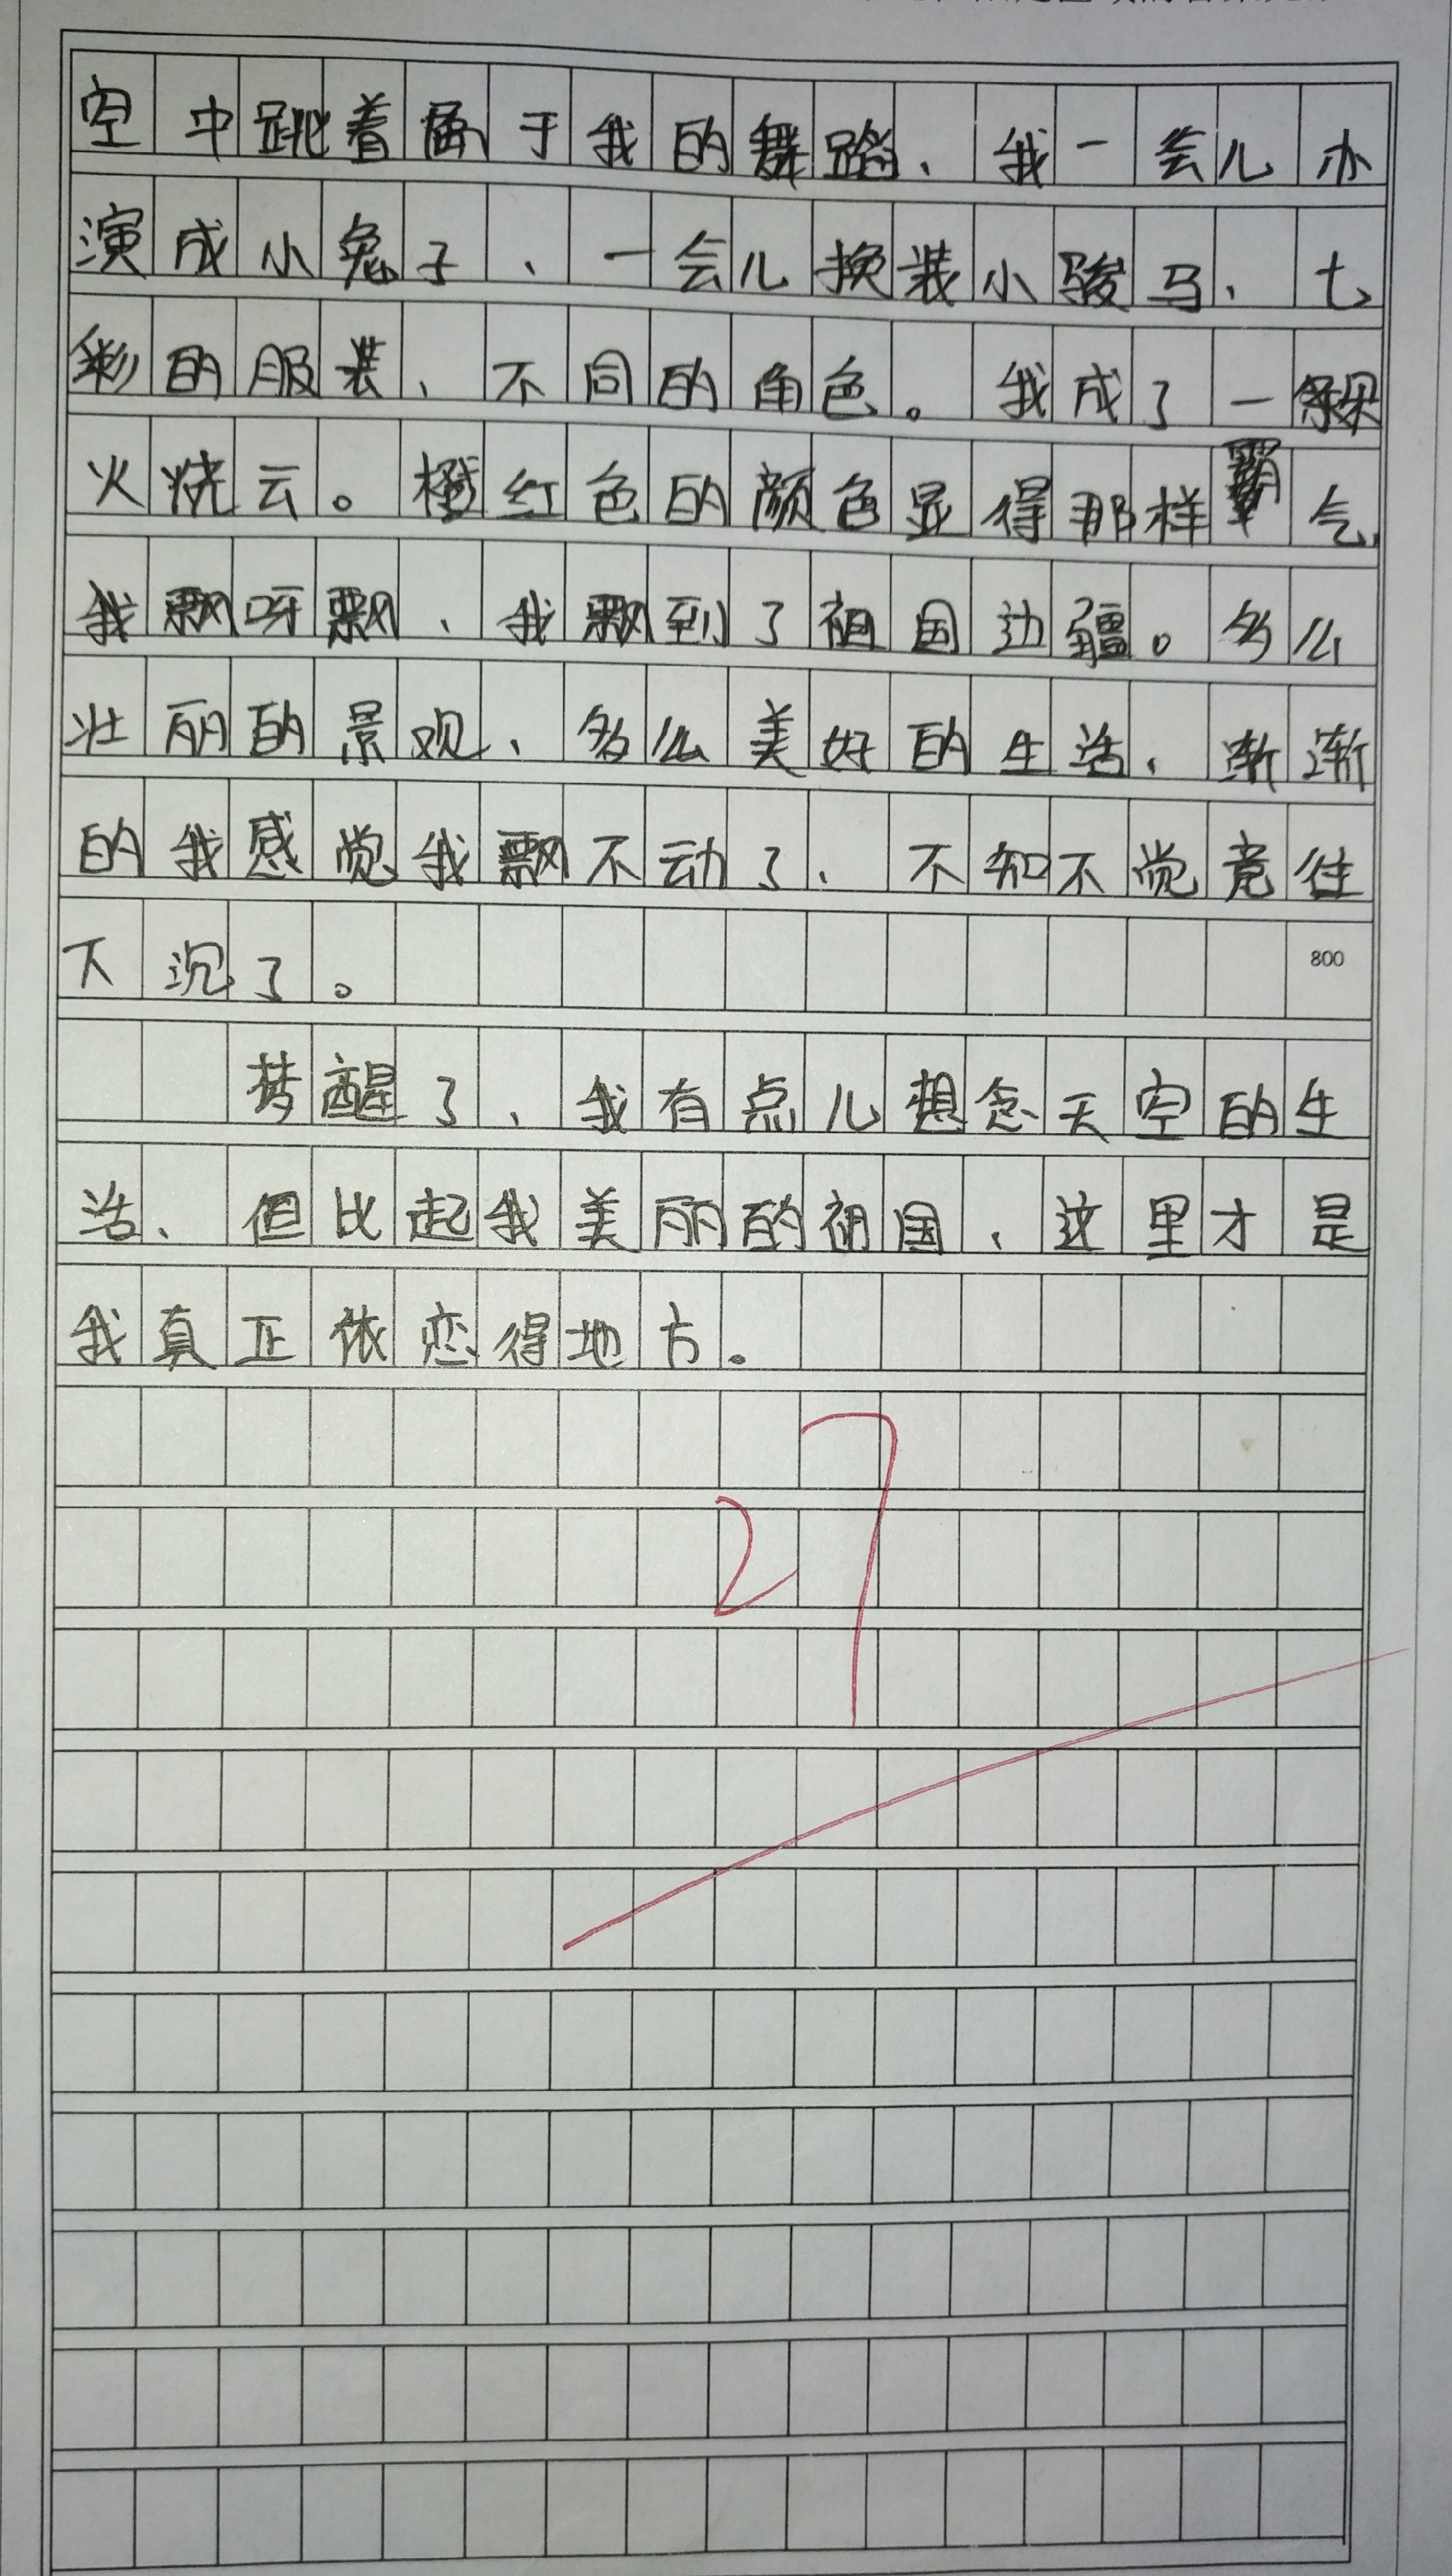 空中跳着属于我的舞蹈、我一会儿办
演成小兔子、一会儿换装小骏马、七
彩的服装、不同的角色。我成了一颗
火烧云。橙红色的颜色显得那样霸气、
我飘呀飘、我飘到了祖国边疆。多么
壮丽的景观、多么美好的生活、渐渐
的我感觉我飘不动了、不知不觉竟往
下沉了。
800
梦醒了、我有点儿想念天空的生
活、但比起我美丽的祖国、这里才是
我真正依恋得地方。
27